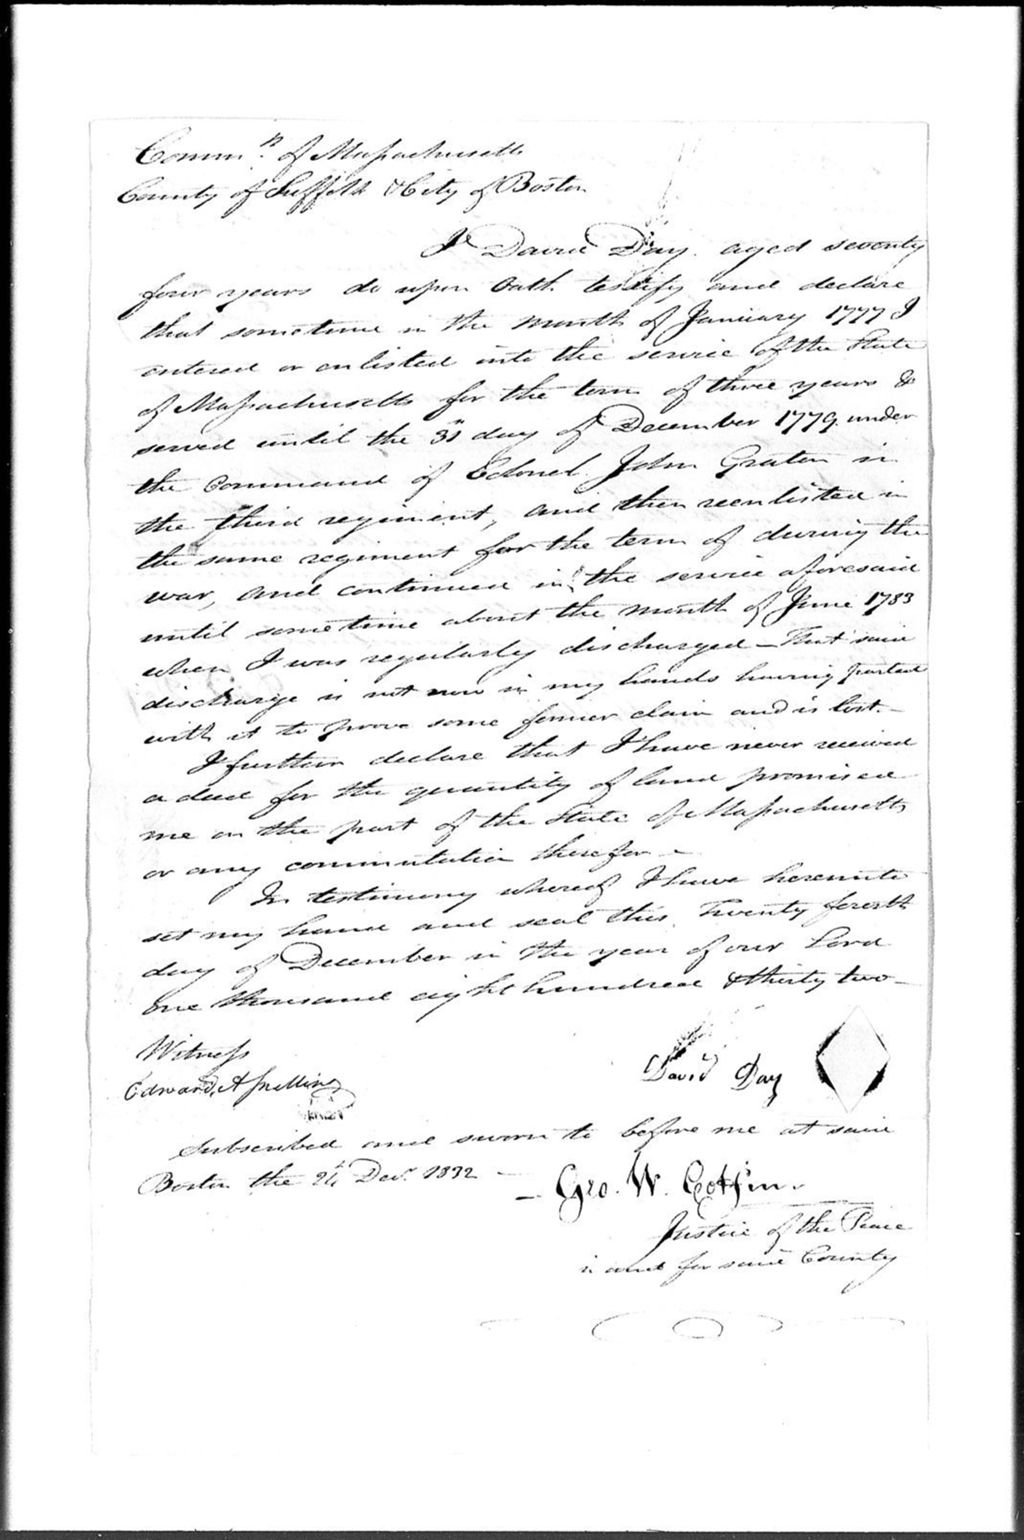 Comm^n. of Massachusetts
County of Suffolk & City of Boston
I David Day aged seventy
four years do upon Oath testify and declare
that sometime in the month of January 1777 I
entered or enlisted into the service of the State
of Massachusetts for the term of three years &
served until the 31 day of December 1779, under
the command of Colonel John Graton in
the third regiment, and then reenlisted in
the same regiment for the term of during the
war, and continued in the service aforesaid
until sometime about the month of June 1783
when I was regularly discharged — That said
discharge is not now in my hands having parted
with it to prove some former claim and is lost. —
I further declare that I have never received
a deed for the quantity of land promised
me on the part of the State of Massachusetts
or any commutation therefor —
In testimony whereof I have hereunto
set my hand and seal this Twenty fourth
day of December in the year of our Lord
one thousand eight hundred & thirty two —
Witness
Edward A Snelling
David Day
Subscribed and sworn to before me at said
Boston the 24 Dec^r. 1832 —
— Geo. W. Coffin.
Justice of the Peace
in and for said County